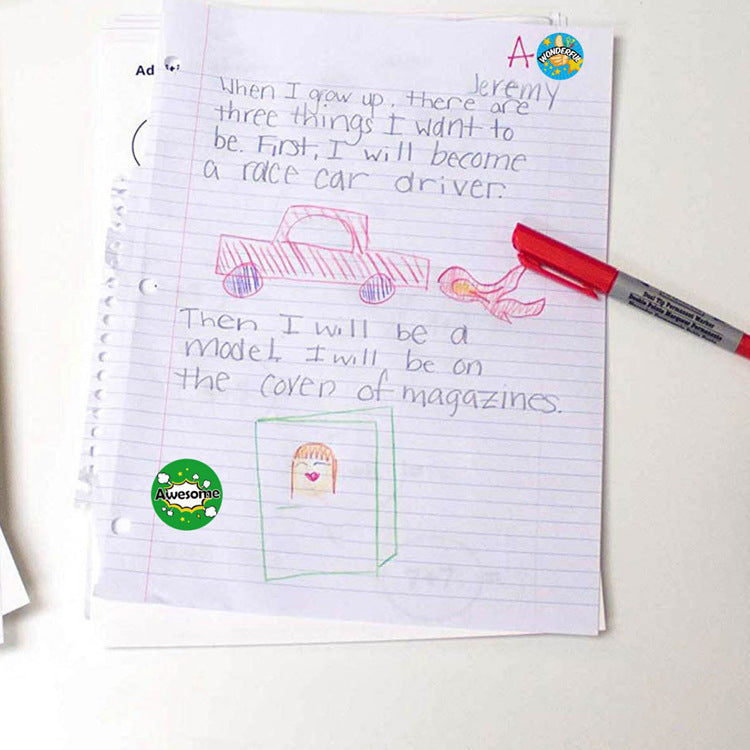 Ad
A
WONDERFUL
Jeremy
When I grow up, there are
three things I want to
be. First, I will become
a race car driver.
Then I will be a
model. I will be on
the cover of magazines.
Awesome